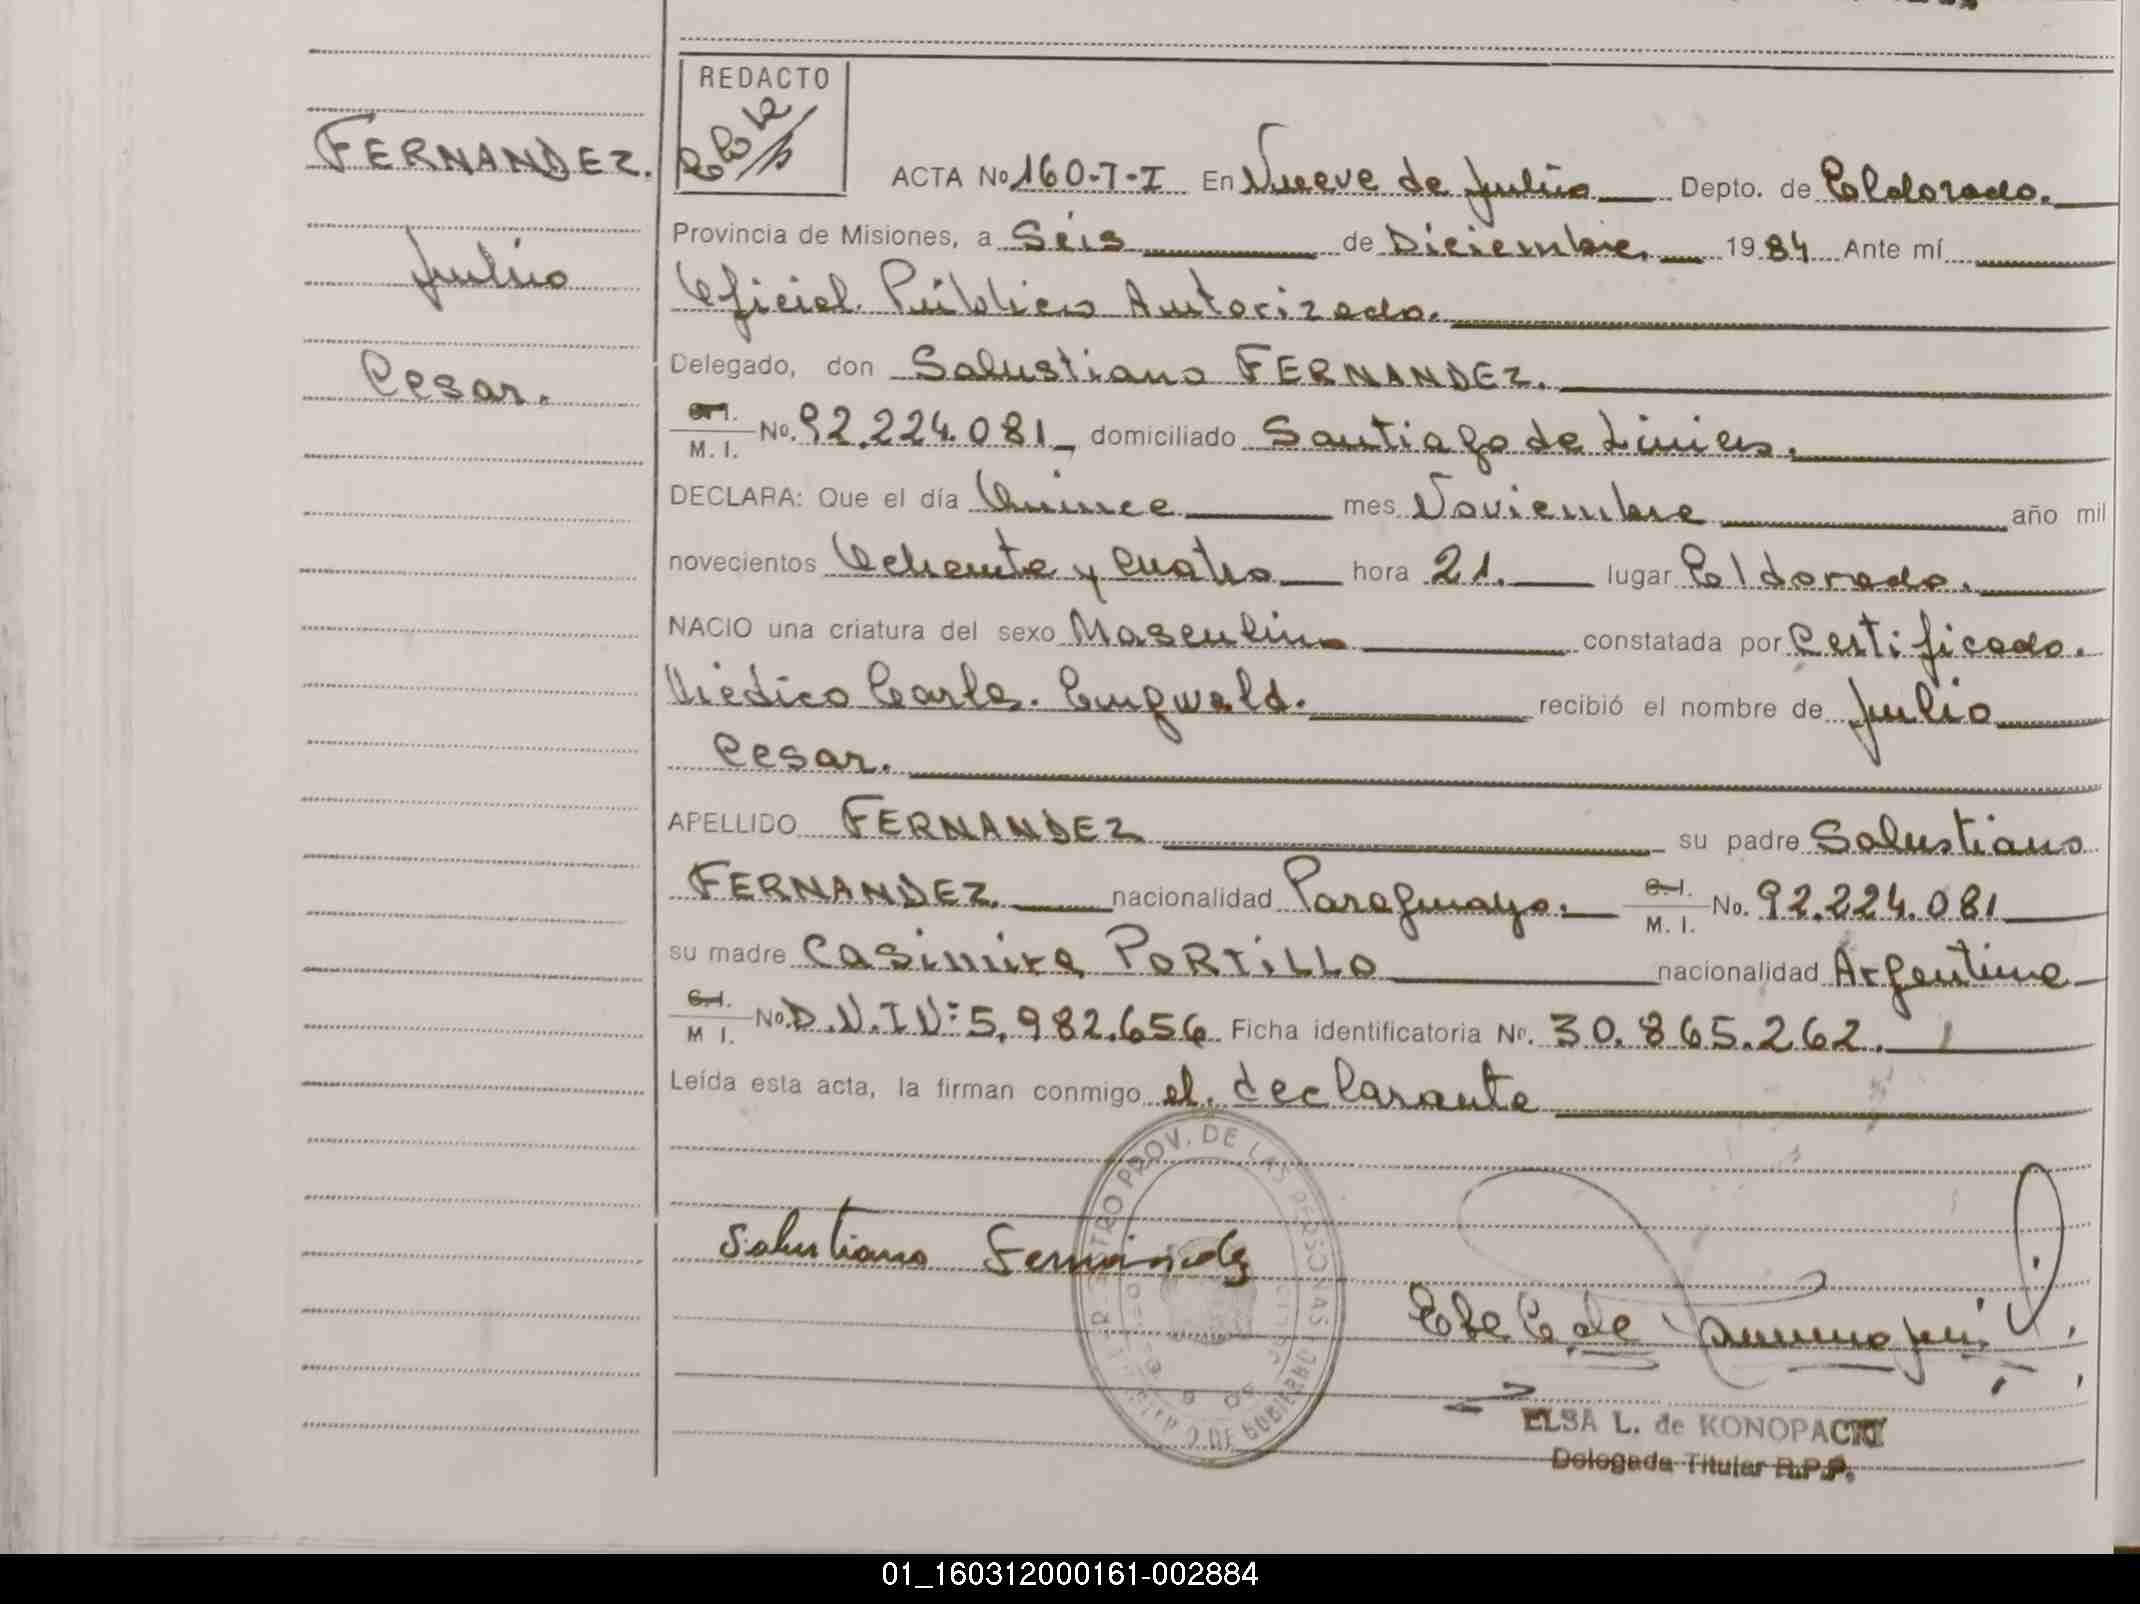 REDACTO
FERNANDEZ.
Julio
Cesar.
ACTA No 160-T-I En Nueve de Julio Depto. de Eldorado.
Provincia de Misiones, a Seis de Diciembre. 1984 Ante mí
Oficial Público Autorizado.
Delegado, don Salustiano FERNANDEZ.
C.I. / M. I. No. 92.224.081 domiciliado Santiago de Liniers.
DECLARA: Que el día Quince mes Noviembre año mil
novecientos Ochenta y Cuatro hora 21. lugar Eldorado.
NACIO una criatura del sexo Masculino constatada por Certificado.
Médico Carlos. recibió el nombre de Julio
Cesar.
APELLIDO FERNANDEZ su padre Salustiano
FERNANDEZ. nacionalidad Paraguayo. C.I. / M. I. No. 92.224.081
su madre Casimira PORTILLO nacionalidad Argentina
C.I. / M I. No D.N.I Nº 5.982.656 Ficha identificatoria Nº. 30.865.262.
Leída esta acta, la firman conmigo el. declarante
REGISTRO PROV. DE LAS PERSONAS
Salustiano Fernández
ELSA L. de KONOPACKI
Delegada Titular R.P.P.
01_160312000161-002884